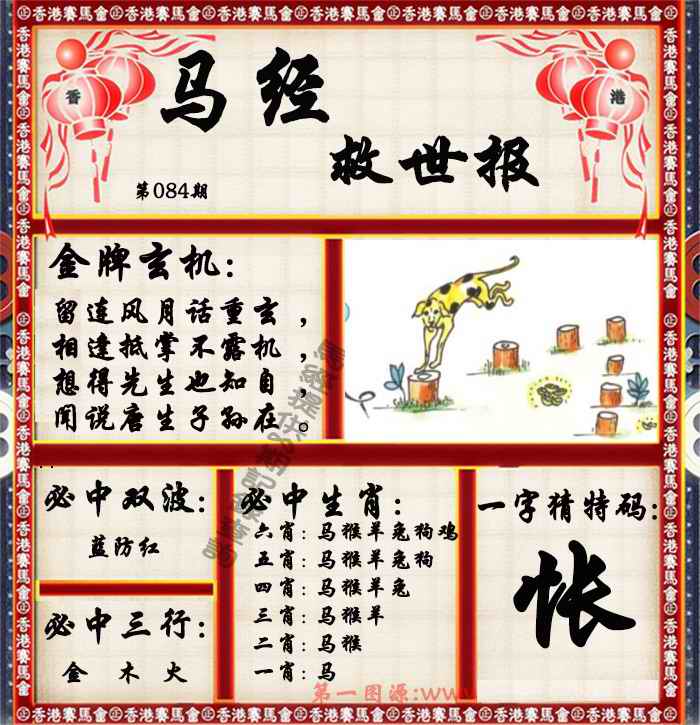 香港賽馬會
香
港
马经
救世报
第084期
金牌玄机:
留连风月话重玄，
相逢抵掌不露机，
想得先生也知自，
闻说唐生子孙在。
必中双波:
蓝防红
必中三行:
金 木 火
必中生肖:
六肖: 马猴羊兔狗鸡
五肖: 马猴羊兔狗
四肖: 马猴羊兔
三肖: 马猴羊
二肖: 马猴
一肖: 马
一字猜特码:
怅
第一图源:www